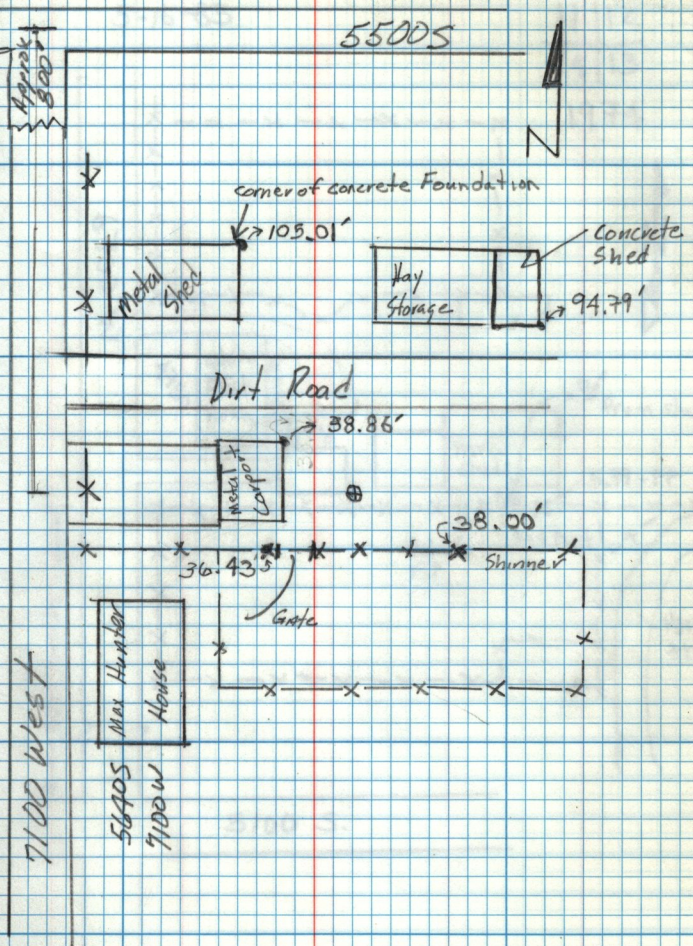 5500S
Approx
800'
N
corner of concrete Foundation
105.01'
Metal
Shed
Hay
Storage
concrete
Shed
94.79'
Dirt Road
38.86'
Metal
Carport
38.00'
36.435
Shinner
Gate
Max Hunter
House
5640S
7100W
7100 West